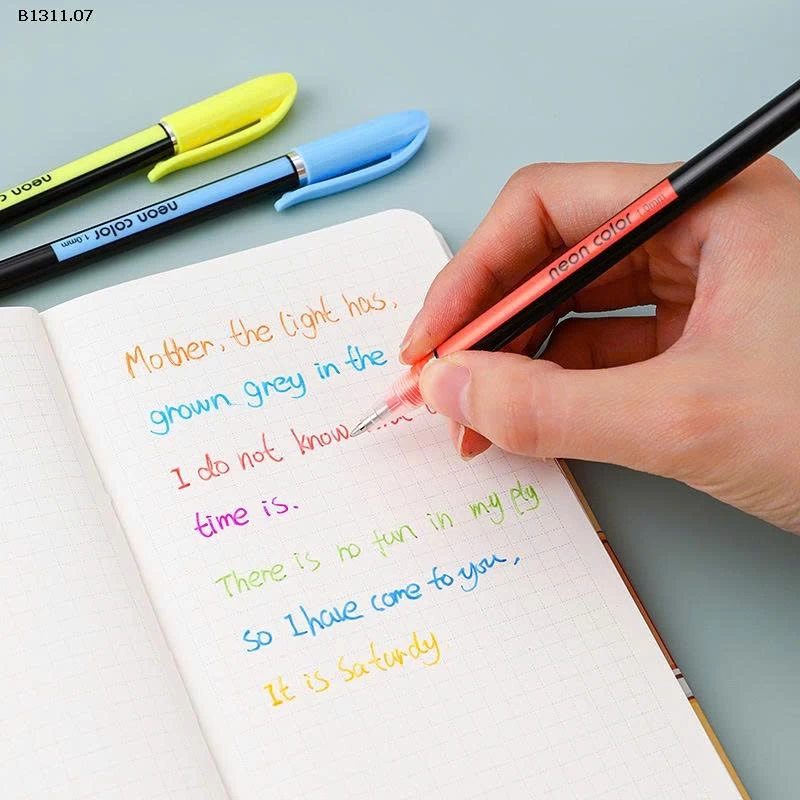 B1311.07
neon c
neon color 1.0mm
neon color 1.0mm
Mother, the light has,
grown grey in the
I do not know
time is.
There is no fun in my ply
so I have come to you,
It is Saturdy